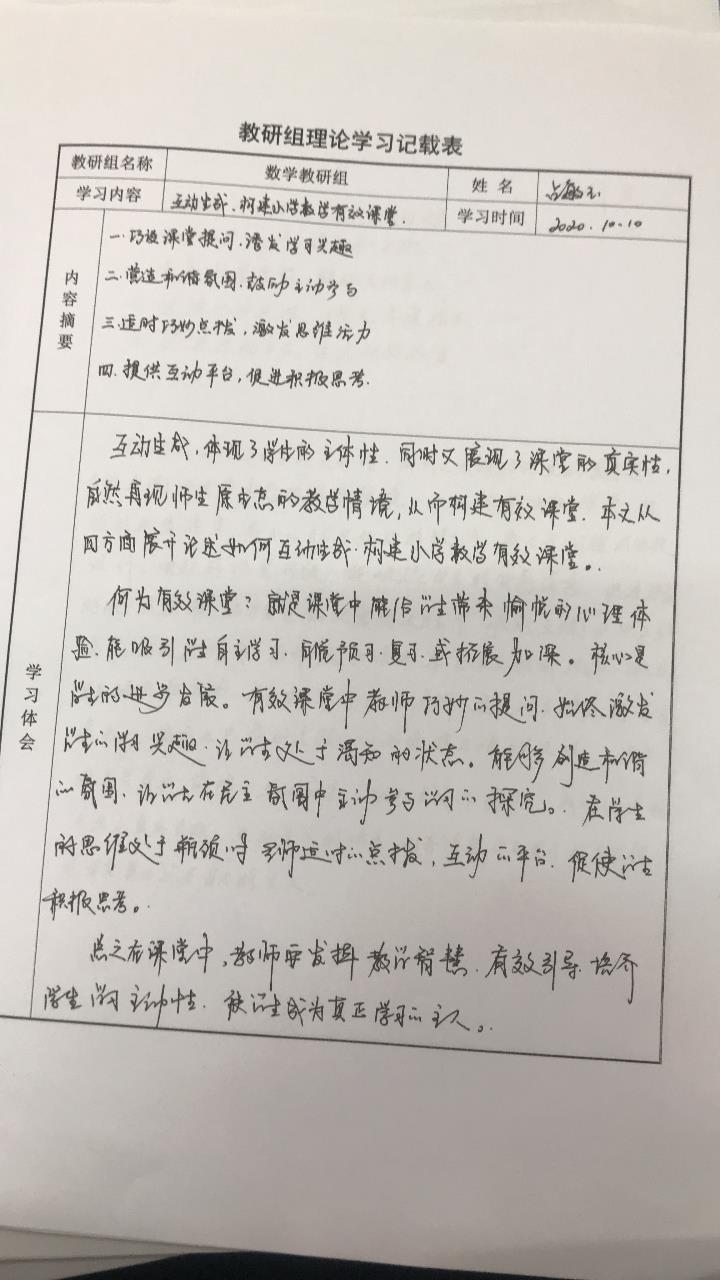 教研组理论学习记载表
教研组名称 数学教研组 姓 名
学习内容 互动生成.构建小学数学有效课堂. 学习时间 2020.10.10
内容摘要
一.巧设课堂提问.激发学习兴趣
二.营造和谐氛围.鼓励主动参与
三.适时巧妙点拨,激发思维活力
四.提供互动平台,促进积极思考.
学习体会
互动生成,体现了学生的主体性.同时又展现了课堂的真实性,
自然再现师生原生态的教学情境,从而构建有效课堂.本文从
四方面展开论述如何互动生成.构建小学数学有效课堂。
何为有效课堂?就是课堂中能给学生带来愉悦的心理体
验.能吸引学生自主学习.自觉预习.复习.或拓展加深。核心是
学生的进步发展。有效课堂中教师巧妙的提问.始终激发
学生的学习兴趣.让学生处于渴知的状态。能够创造和谐
的氛围.让学生在民主氛围中主动参与学习的探究。在学生
的思维处于瓶颈时老师适时的点拨,互动的平台.促使学生
积极思考。
总之在课堂中,教师要发挥教学智慧.有效引导.培养
学生学习主动性.使学生成为真正学习的主人。